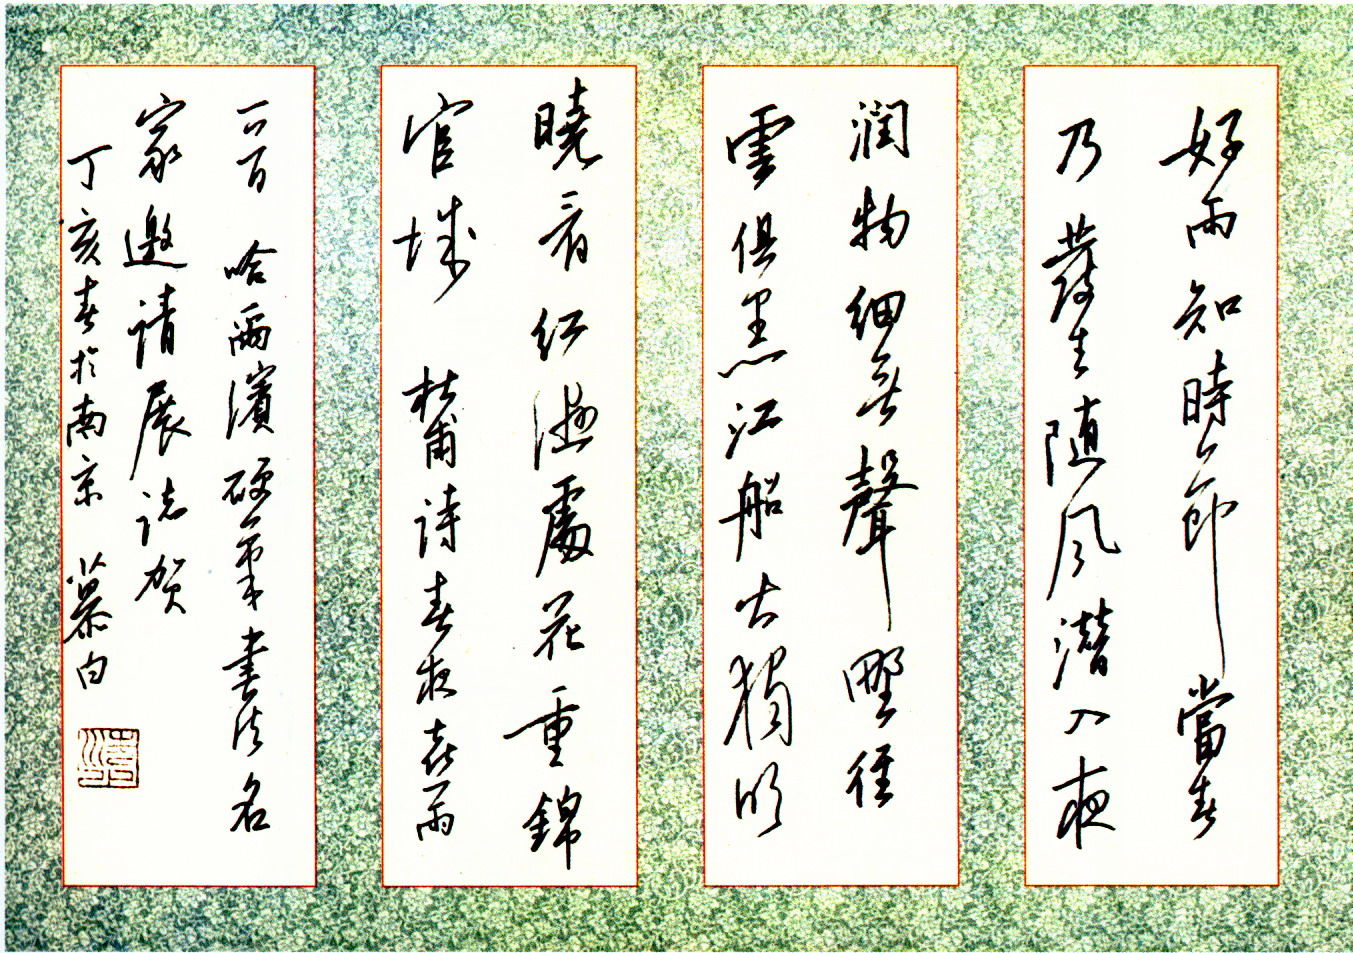 好雨知時節當春
乃發生随風潜入夜
润物细無聲野徑
雲俱黑江船火獨明
曉看红濕處花重錦
官城 杜甫詩春夜喜雨
百 哈爾濱硬筆書法名
家邀請展誌賀
丁亥春於南京 慕白